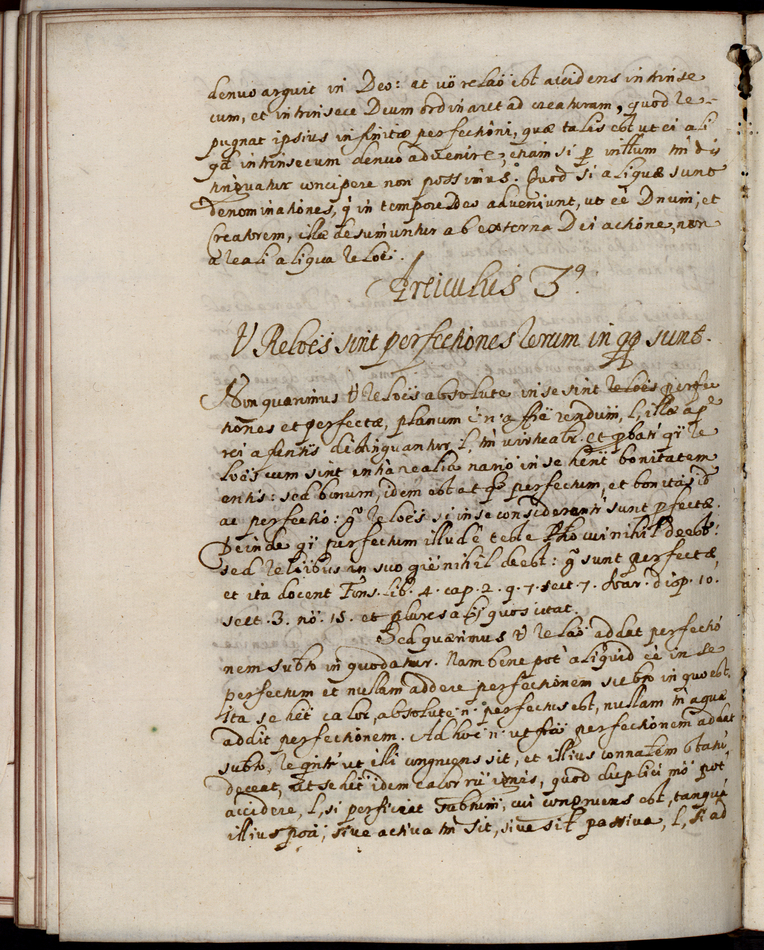 denuo arguit in Deo: at uõ relaõ est accidens intrinse
cum, et intrinsece Deum ordinaret ad creaturam, quod re-
pugnat ipsius infinitæ perfectioni, quæ talis est ut ei ali
qd intrinsecum denuo advenire, etiam si p intllum tñ dis
tinguatur concipere non possimus. Quod si aliquæ sunt
denominationes, q in tempore Deo adveniunt, ut eẽ Dnum, et
Creatorem, illæ desumuntur ab externa Dei actione, non
a reali aliqua reloẽ.
Articulus 3º
V Reloẽs sint perfectiones rerum in qq sunt.
Non quærimus V reloẽs absolute in se sint perfec
tiones et perfectæ, planum
rei
loẽs cum sint entia realia in se hent bonitatem
entis: sed bonum, idem est at qe perfectum, et bonitas id
ac perfectio: gº reloẽs si in se considerantr sunt pfectæ.
Deinde qi perfectum illud ẽ teste Pho cui nihil deest:
sed relõibus in suo gñe nihil deest: gº sunt perfectæ,
et ita docent Fons. lib. 4. cap. 2. q. 7. sect. 7. Soar. disp. 10.
sect. 3. nõ. 15. et plures alij quos citat.
Sed quærimus V relaõ addat perfectio
nem subto in quo datur. Nam bene pot aliquid eẽ in se
perfectum et nullam addere perfectionem subto in quo est.
Ita se het calor, absolute n. perfectus est, nullam tñ aquæ
addit perfectionem. Ad hoc n. ut frã perfectionem addat
subto, reqritr ut illi congruens sit, et illius connatem
deceat, ut se het idem calor rũ ignis, quod duplici mõ pot
accidere, l, si perficiat subtum, cui congruens est, tanquã
illius poã, sive activa tñ sit, sive sit passiva, l, si ad